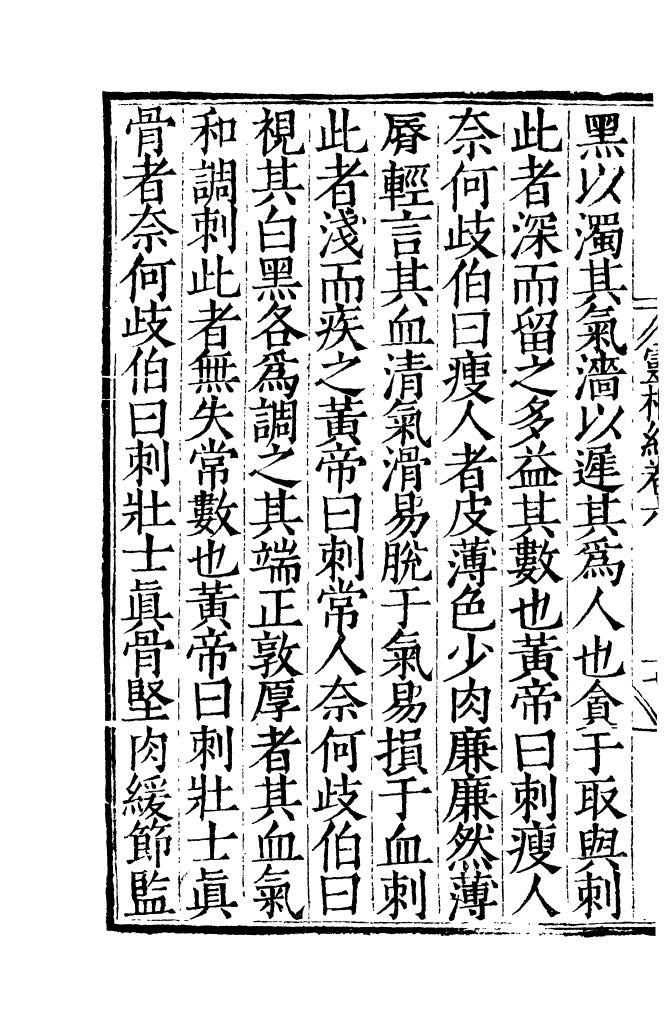 黑以濁其氣濇以遲其爲人也貪于取與刺
此者深而留之多益其數也黃帝曰刺瘦人
奈何歧伯曰瘦人者皮薄色少肉廉廉然薄
脣輕言其血清氣滑易脫于氣易損于血刺
此者淺而疾之黃帝曰刺常人奈何歧伯曰
視其白黑各爲調之其端正敦厚者其血氣
和調刺此者無失常數也黃帝曰刺壯士眞
骨者奈何歧伯曰刺壯士眞骨堅肉緩節監